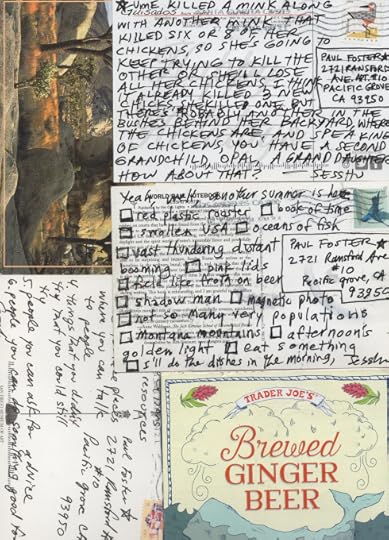 UME, KILLED A MINK ALONG
WITH ANOTHER MINK THAT
KILLED SIX OR 8 OF HER
CHICKENS, SO SHE'S GOING TO
KEEP TRYING TO KILL THE
OTHER OR SHE'LL LOSE
ALL HER CHICKENS, I THINK
IT ALREADY KILLED A NEW
CHICK, SHE KILLED ONE, BUT
THERE'S PROBABLY ANOTHER IN THE
BUSHES BEHIND HER BACKYARD WHERE
THE CHICKENS ARE, AND SPEAKING
OF CHICKENS, YOU HAVE A SECOND
GRANDCHILD OPAL, A GRANDDAUGHTER
HOW ABOUT THAT?
JESSHU
PAUL FOSTER
2721 RANSFORD
AVE. APT. #10
PACIFIC GROVE,
CA 93950
WORLD BANK NOTE
Yeah well another summer is here
red plastic rooster
book of time
smollen USA
oceans of fish
vast thundering distant
booming
pink lids
field life fresh on beer
shadow man
magnetic photo
not so many very populations
montana mountains
afternoon's
golden light
eat something
I'll do the dishes in the morning, Jesshu
PAUL FOSTER
2721 Ransford Ave
#10
Pacific grove, CA
93950
when you can talk
to people
4. things that you didn't
try that you could still
try
5. people you can ask for advice
6. people you can do something good for
resources
Paul Foster
2721 Ransford Av
#10
Pacific grove CA
93950
TRADER JOE'S
Brewed
GINGER
BEER